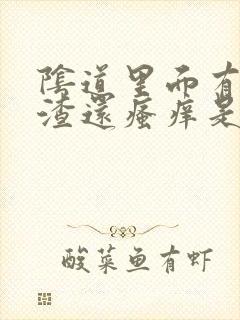 陰道里面有
渣還瘙痒是
酸菜鱼有虾